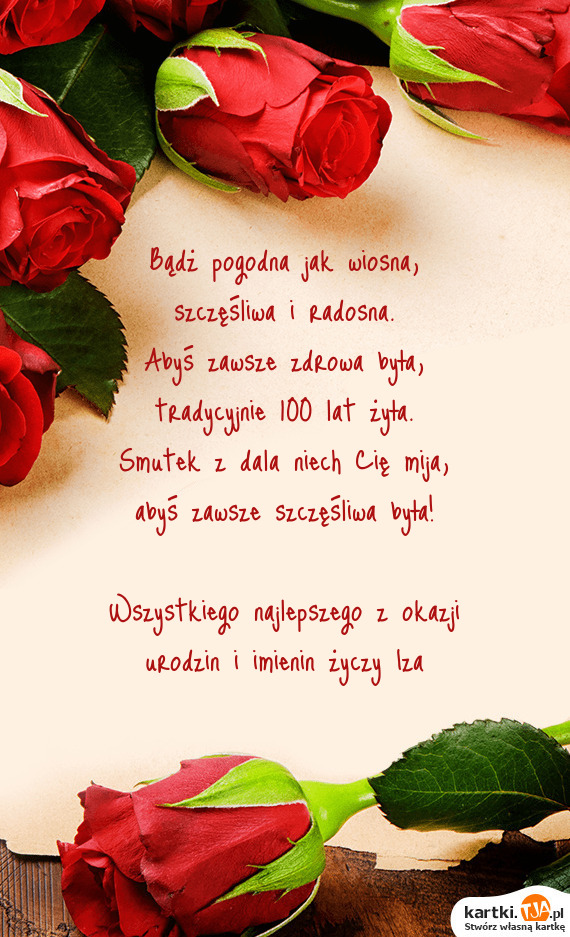 Bądź pogodna jak wiosna,
szczęśliwa i radosna.
Abyś zawsze zdrowa była,
tradycyjnie 100 lat żyła.
Smutek z dala niech Cię mija,
abyś zawsze szczęśliwa była!
Wszystkiego najlepszego z okazji
urodzin i imienin życzy Iza
kartki.TJA.pl
Stwórz własną kartkę